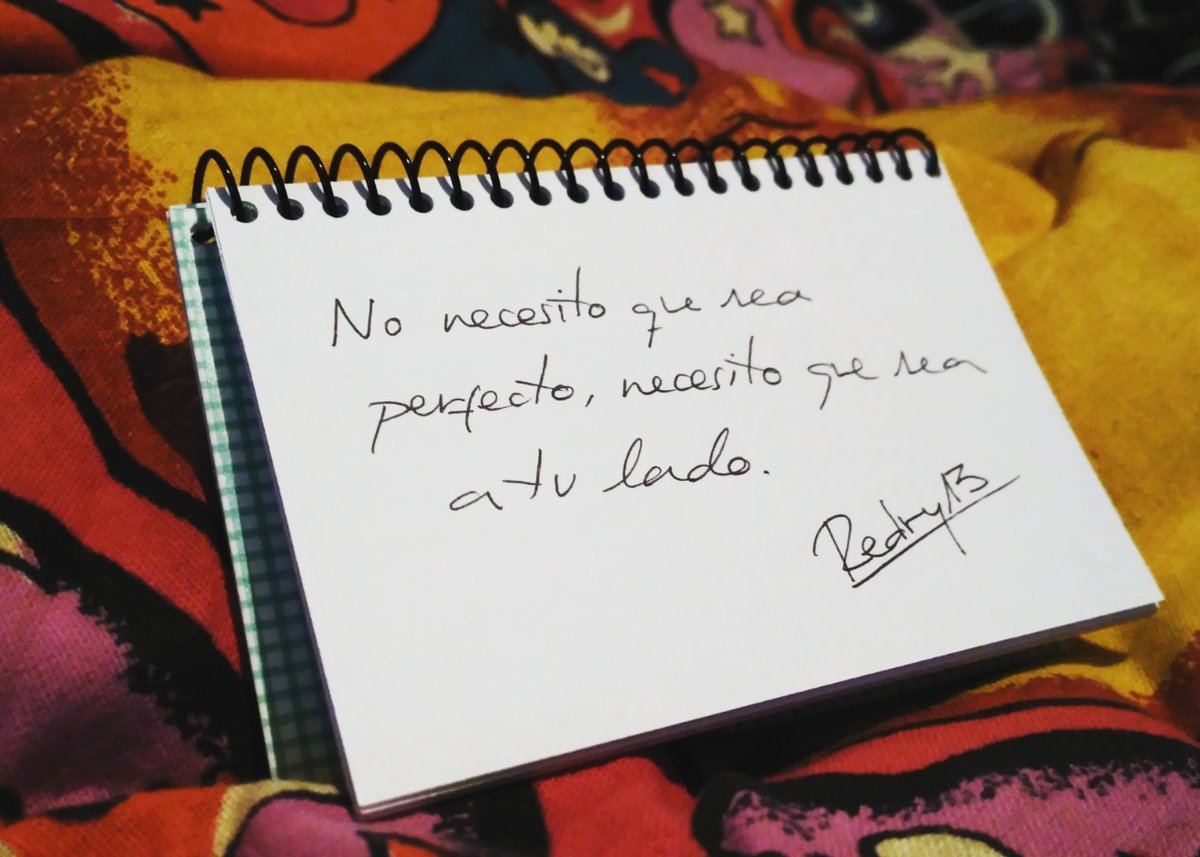 No necesito que sea
perfecto, necesito que sea
a tu lado.
Redry13